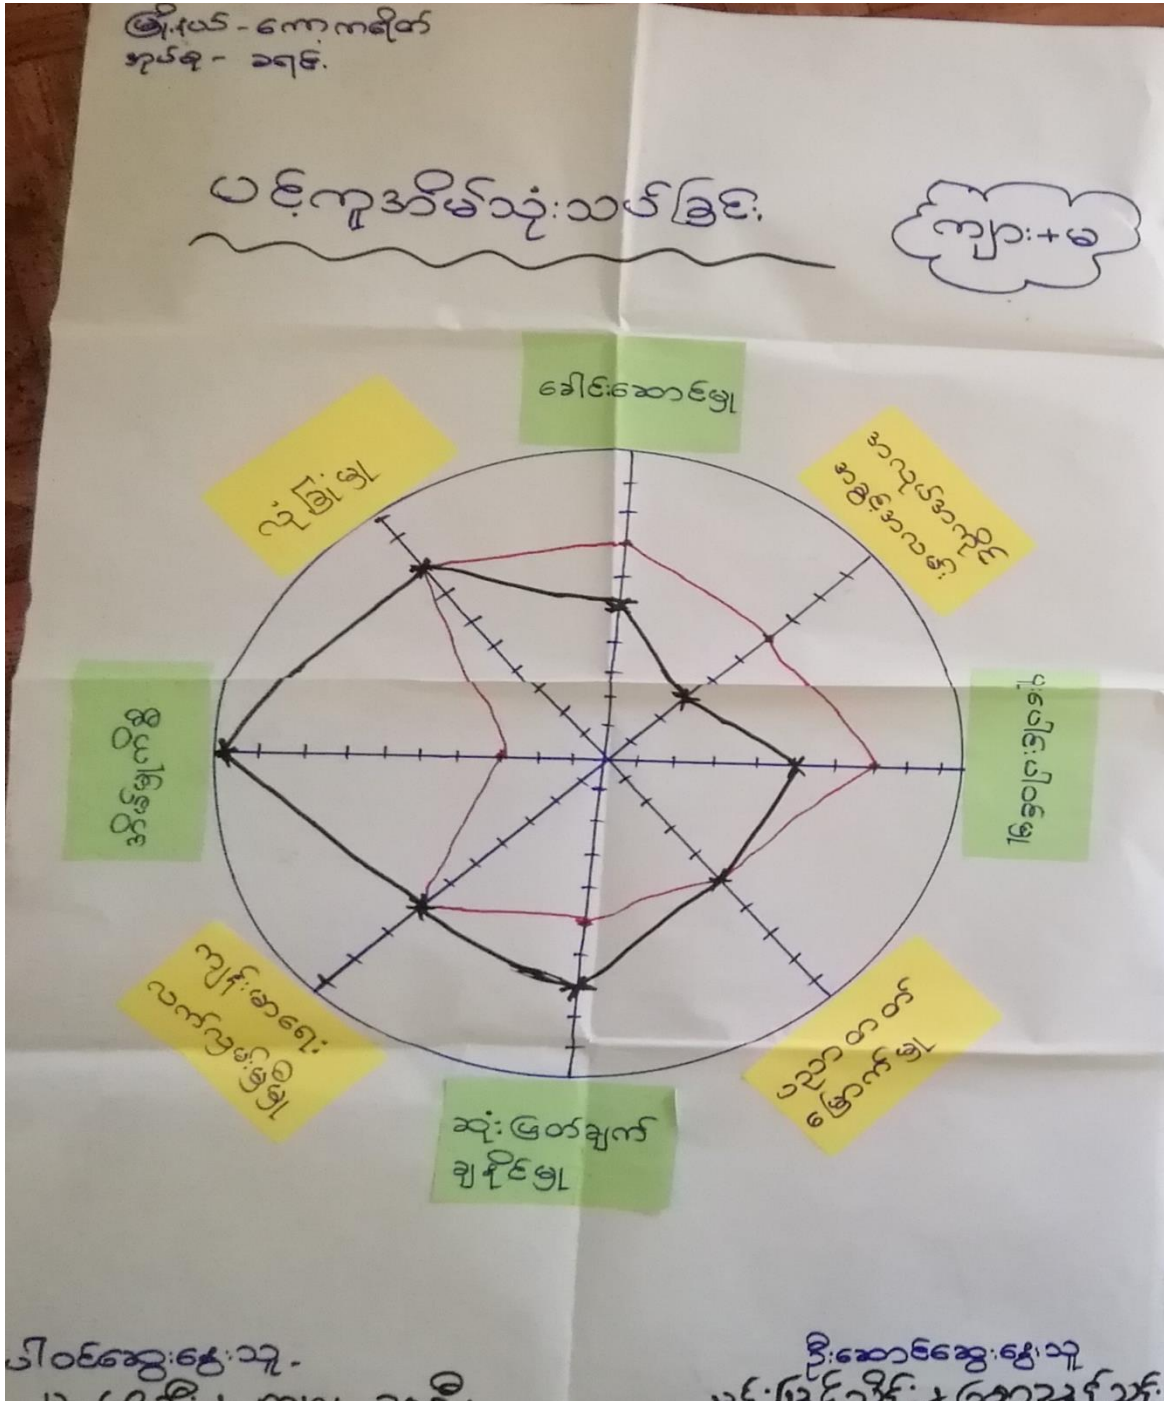 မြို့နယ် - ကော့ကရိတ်
အုပ်စု - ခရင်း
ပင့်ကူအိမ်သုံးသပ်ခြင်း
ကျား + မ
ခေါင်းဆောင်မှု
အလုပ်အကိုင်
အခွင့်အလမ်း
ပူးပေါင်းပါဝင်မှု
ပညာတတ်
မြောက်မှု
ဆုံးဖြတ်ချက်
ချနိုင်မှု
ကျန်းမာရေး
လက်လှမ်းမှီမှု
အိမ်မှုကိစ္စ
လုံခြုံမှု
ပါဝင်ဆွေးနွေးသူ -
ဦးဆောင်ဆွေးနွေးသူ